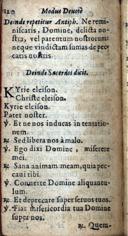 120 Modus Deuotè
Deinde repetitur Antiph. Ne remi-
niscaris, Domine, delicta no-
stra, vel parentum nostrorum:
neque vindictam sumas de pec-
catis nostris.
Deinde Sacerdos dicit.
Kyrie eleison.
Christe eleison.
Kyrie eleison.
Pater noster.
℣. Et ne nos inducas in tentatio-
nem.
℟. Sed libera nos à malo.
℣. Ego dixi Domine, miserere
mei.
℟. Sana animam meam, quia pec-
caui tibi.
℣. Conuerte Domine aliquantu-
lum.
℟. Et deprecare super seruos tuos.
℣. Fiat misericordia tua Domine
super nos.
℟. Quem-